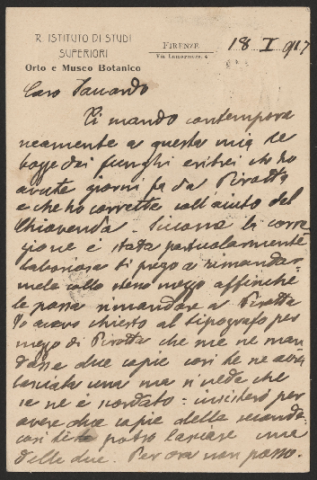 R. ISTITUTO DI STUDI
SUPERIORI
Orto e Museo Botanico
FIRENZE
Via Lamarmora, 4
18 I 917
Caro Saccardo
Ti mando contempora
neamente a questa mia le
bozze dei funghi eritrei che ho
avute giorni fa da Pirotta
e che ho corrette coll'aiuto del
Chiovenda. Siccome la corre
zione è stata particolarmente
laboriosa ti prego a rimandar
mele collo stesso mezzo affinchè
le possa rimandare a Pirotta
Io avevo chiesto al tipografo per
mezzo di Pirotta che me ne man
dasse due copie così te ne avrei
lasciata una ma si vede che
se ne è scordato: insisterò per
avere due copie delle seconde
così te potrò lasciare una
delle due. Per ora non posso.